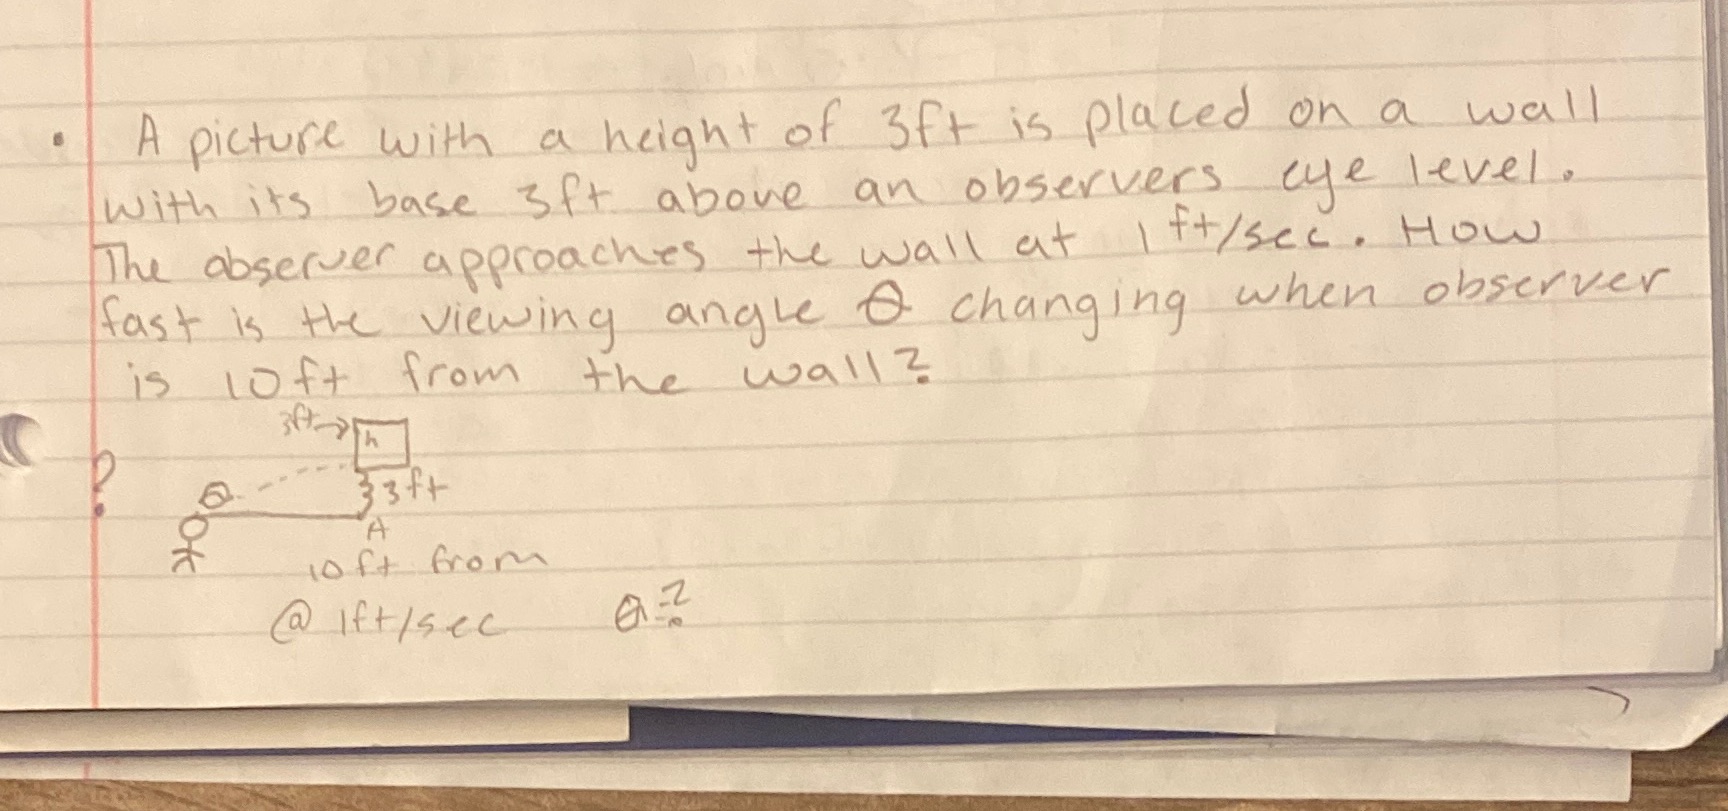 • A picture with a height of 3ft is placed on a wall
with its base 3ft above an observers eye level.
The observer approaches the wall at 1 ft/sec. How
fast is the viewing angle θ changing when observer
is 10ft from the wall?
3ft→ h
?
θ 3ft
A
10ft from
@ 1ft/sec θ=?